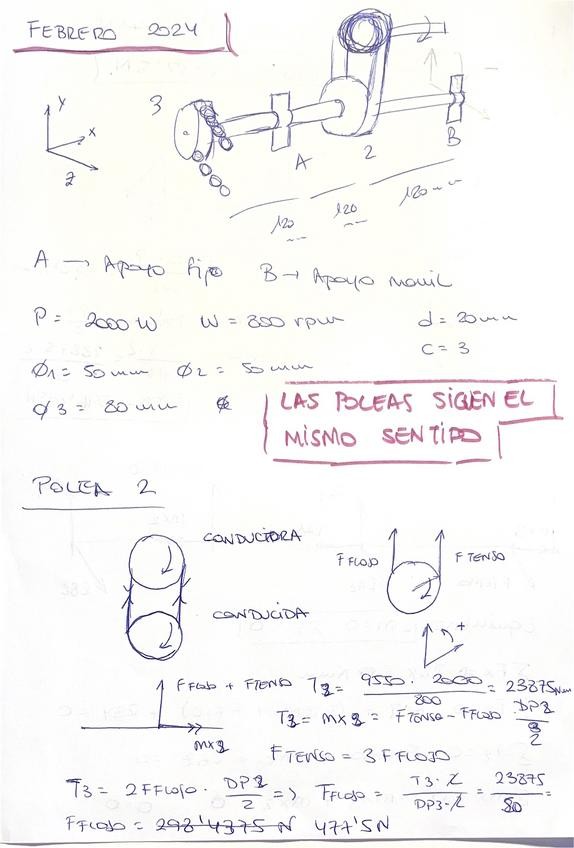 FEBRERO 2024
Y
X
Z
3
A
2
B
120
120
120 mm
A → Apoyo fijo B → Apoyo movil
P = 2000 W W = 800 rpm d = 20 mm
C = 3
Ø1 = 50 mm Ø2 = 50 mm
Ø3 = 80 mm
LAS POLEAS SIGUEN EL
MISMO SENTIDO
POLEA 2
CONDUCTORA
CONDUCIDA
F FLOJO
F TENSO
+
F FLOJO + F TENSO
MX2
T2 = 9550 · 2000 / 800 = 23875 Nmm
T2 = MX2 = FTENSO - FFLOJO DP2 / 2
FTENSO = 3 FFLOJO
T3 = 2FFLOJO · DP2 / 2 => FFLOJO = T3·2 / DP3·2 = 23875 / 50 =
FFLOJO = 298'4375 N 477'5N